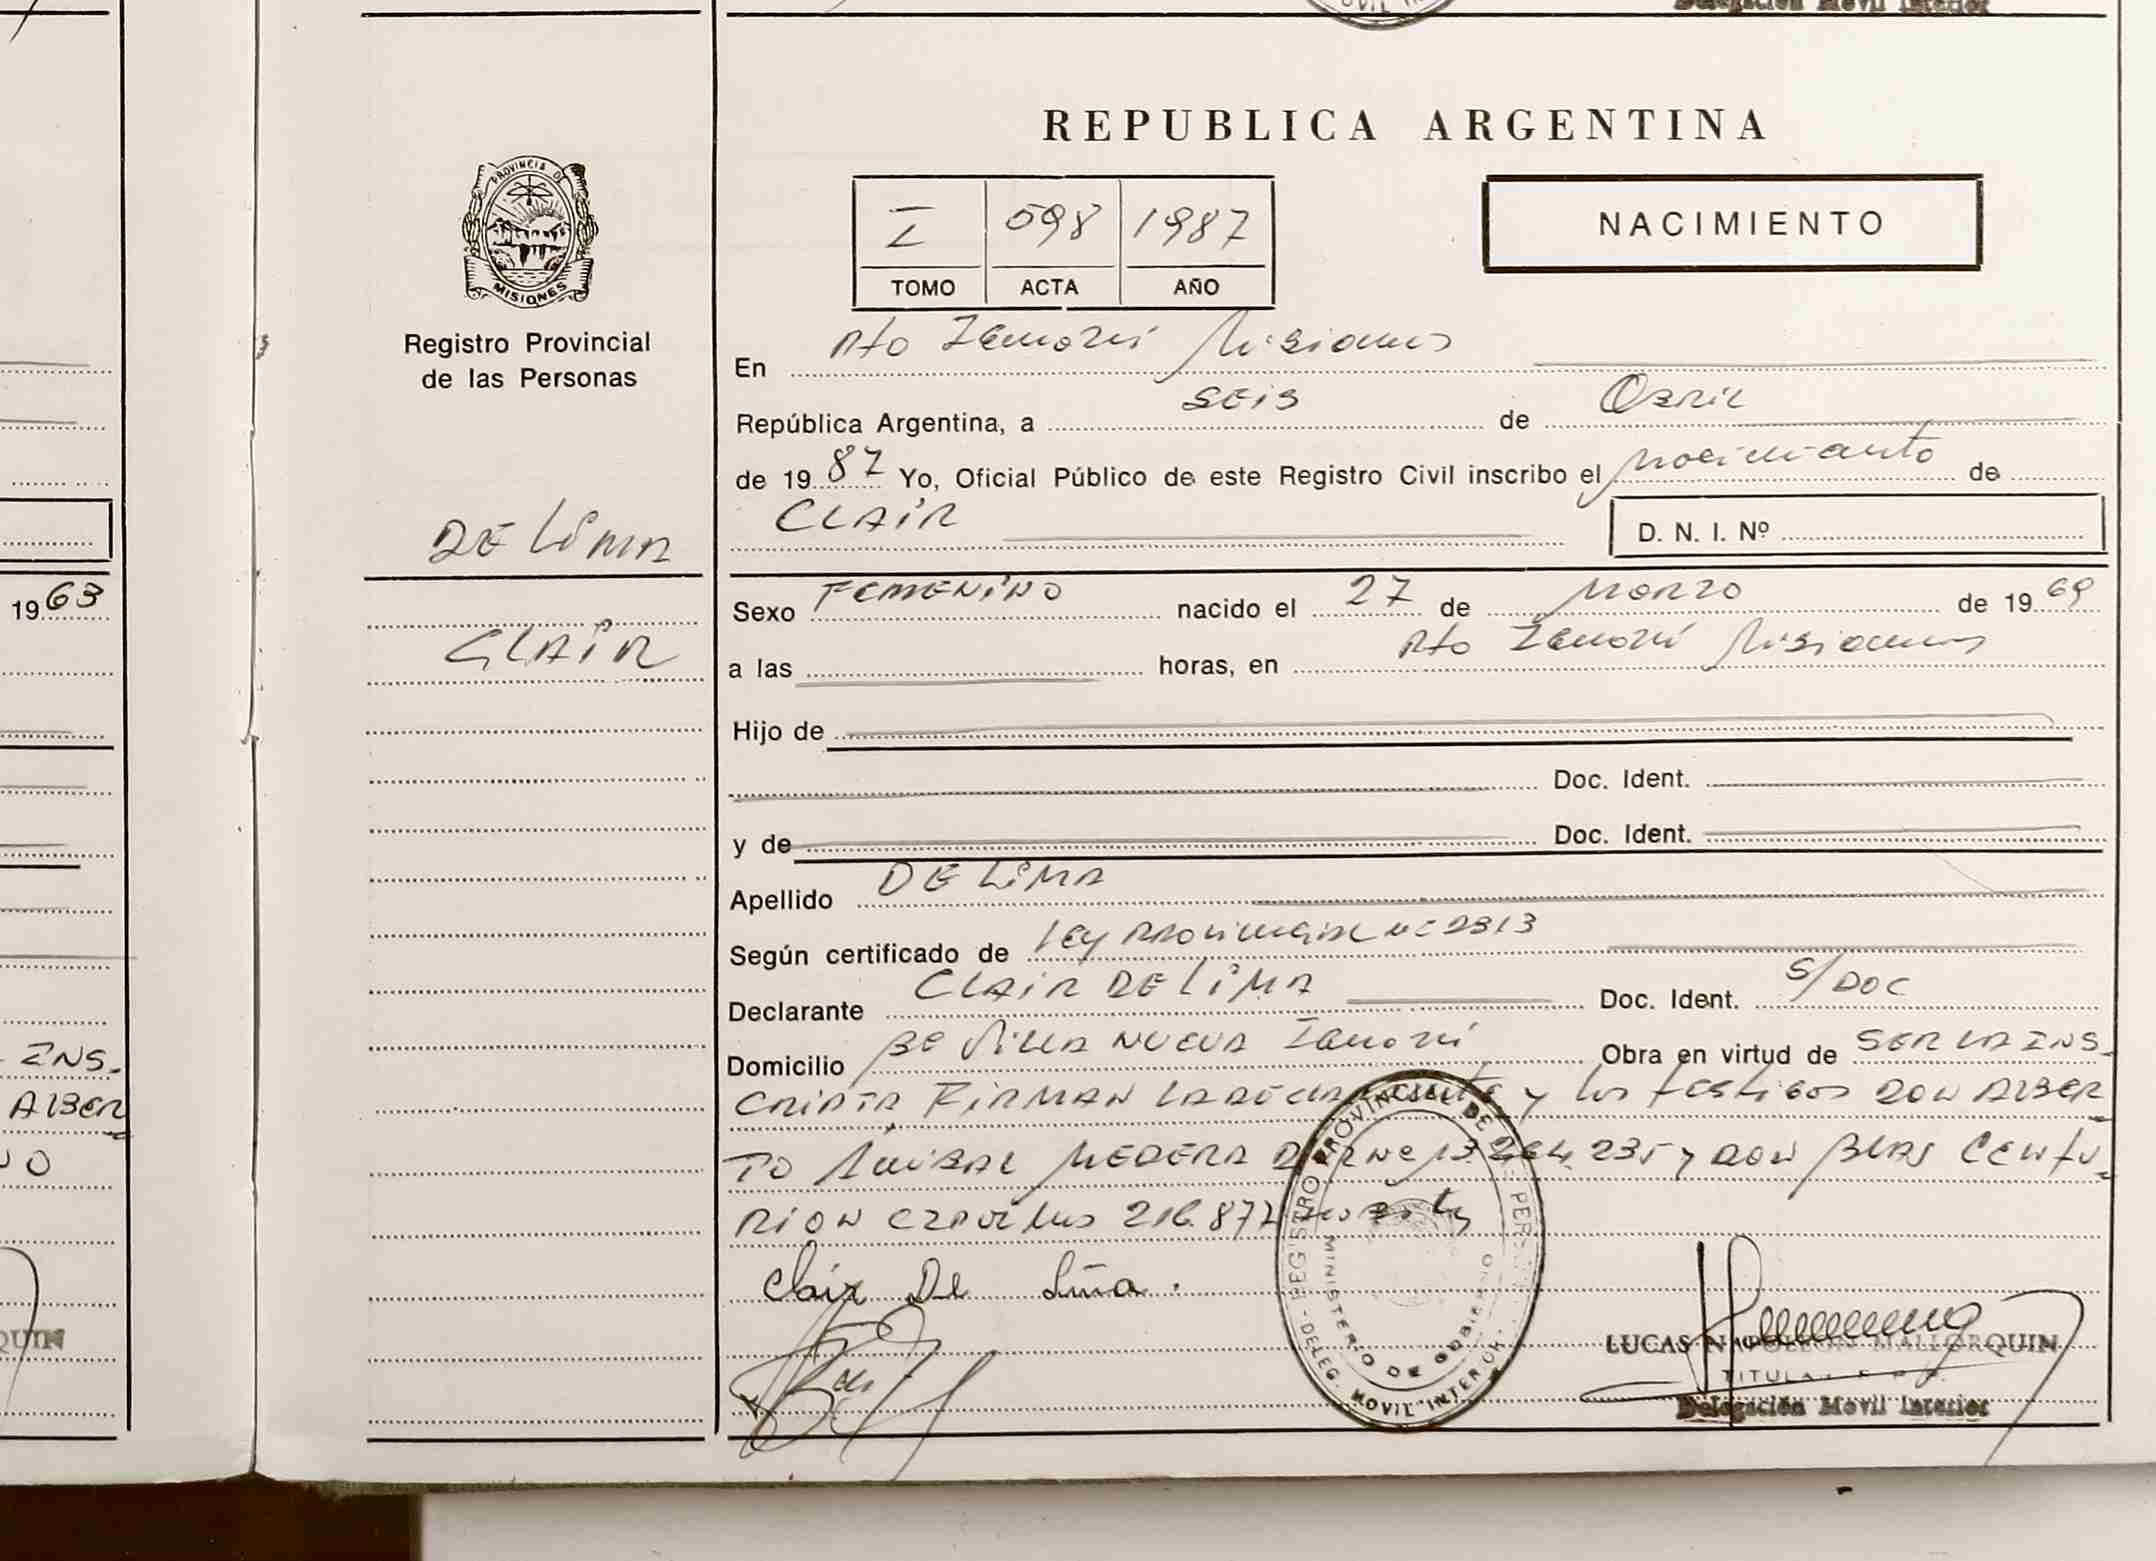 Delegación Móvil Interior
REPUBLICA ARGENTINA
PROVINCIA DE
MISIONES
Registro Provincial
de las Personas
I 598 1987
TOMO ACTA AÑO
NACIMIENTO
En Pto Misiones
República Argentina, a SEIS de Abril
de 1987 Yo, Oficial Público de este Registro Civil inscribo el nacimiento de
CLAIR
D. N. I. Nº
DE LIMA
CLAIR
Sexo FEMENINO nacido el 27 de Marzo de 1969
a las horas, en Pto Misiones
Hijo de
Doc. Ident.
y de Doc. Ident.
Apellido DE LIMA
Según certificado de Ley Provincial Nº 2313
Declarante CLAIR DE LIMA Doc. Ident. S/DOC
Domicilio Bº VILLA NUEVA Obra en virtud de SER LA INS-
CRIPTA FIRMAN LA DECLARANTE y los testigos DON ALBER
TO ANIBAL MEDERA y DON BLAS CENTU-
RION
Clair De Lima.
REGISTRO PROVINCIAL DE
MINISTERIO DE GOBIERNO
DELEG. MOVIL INTERIOR
LUCAS NAPOLEON MALLORQUIN
Delegación Móvil Interior
1963
INS-
ALBER
QUIN